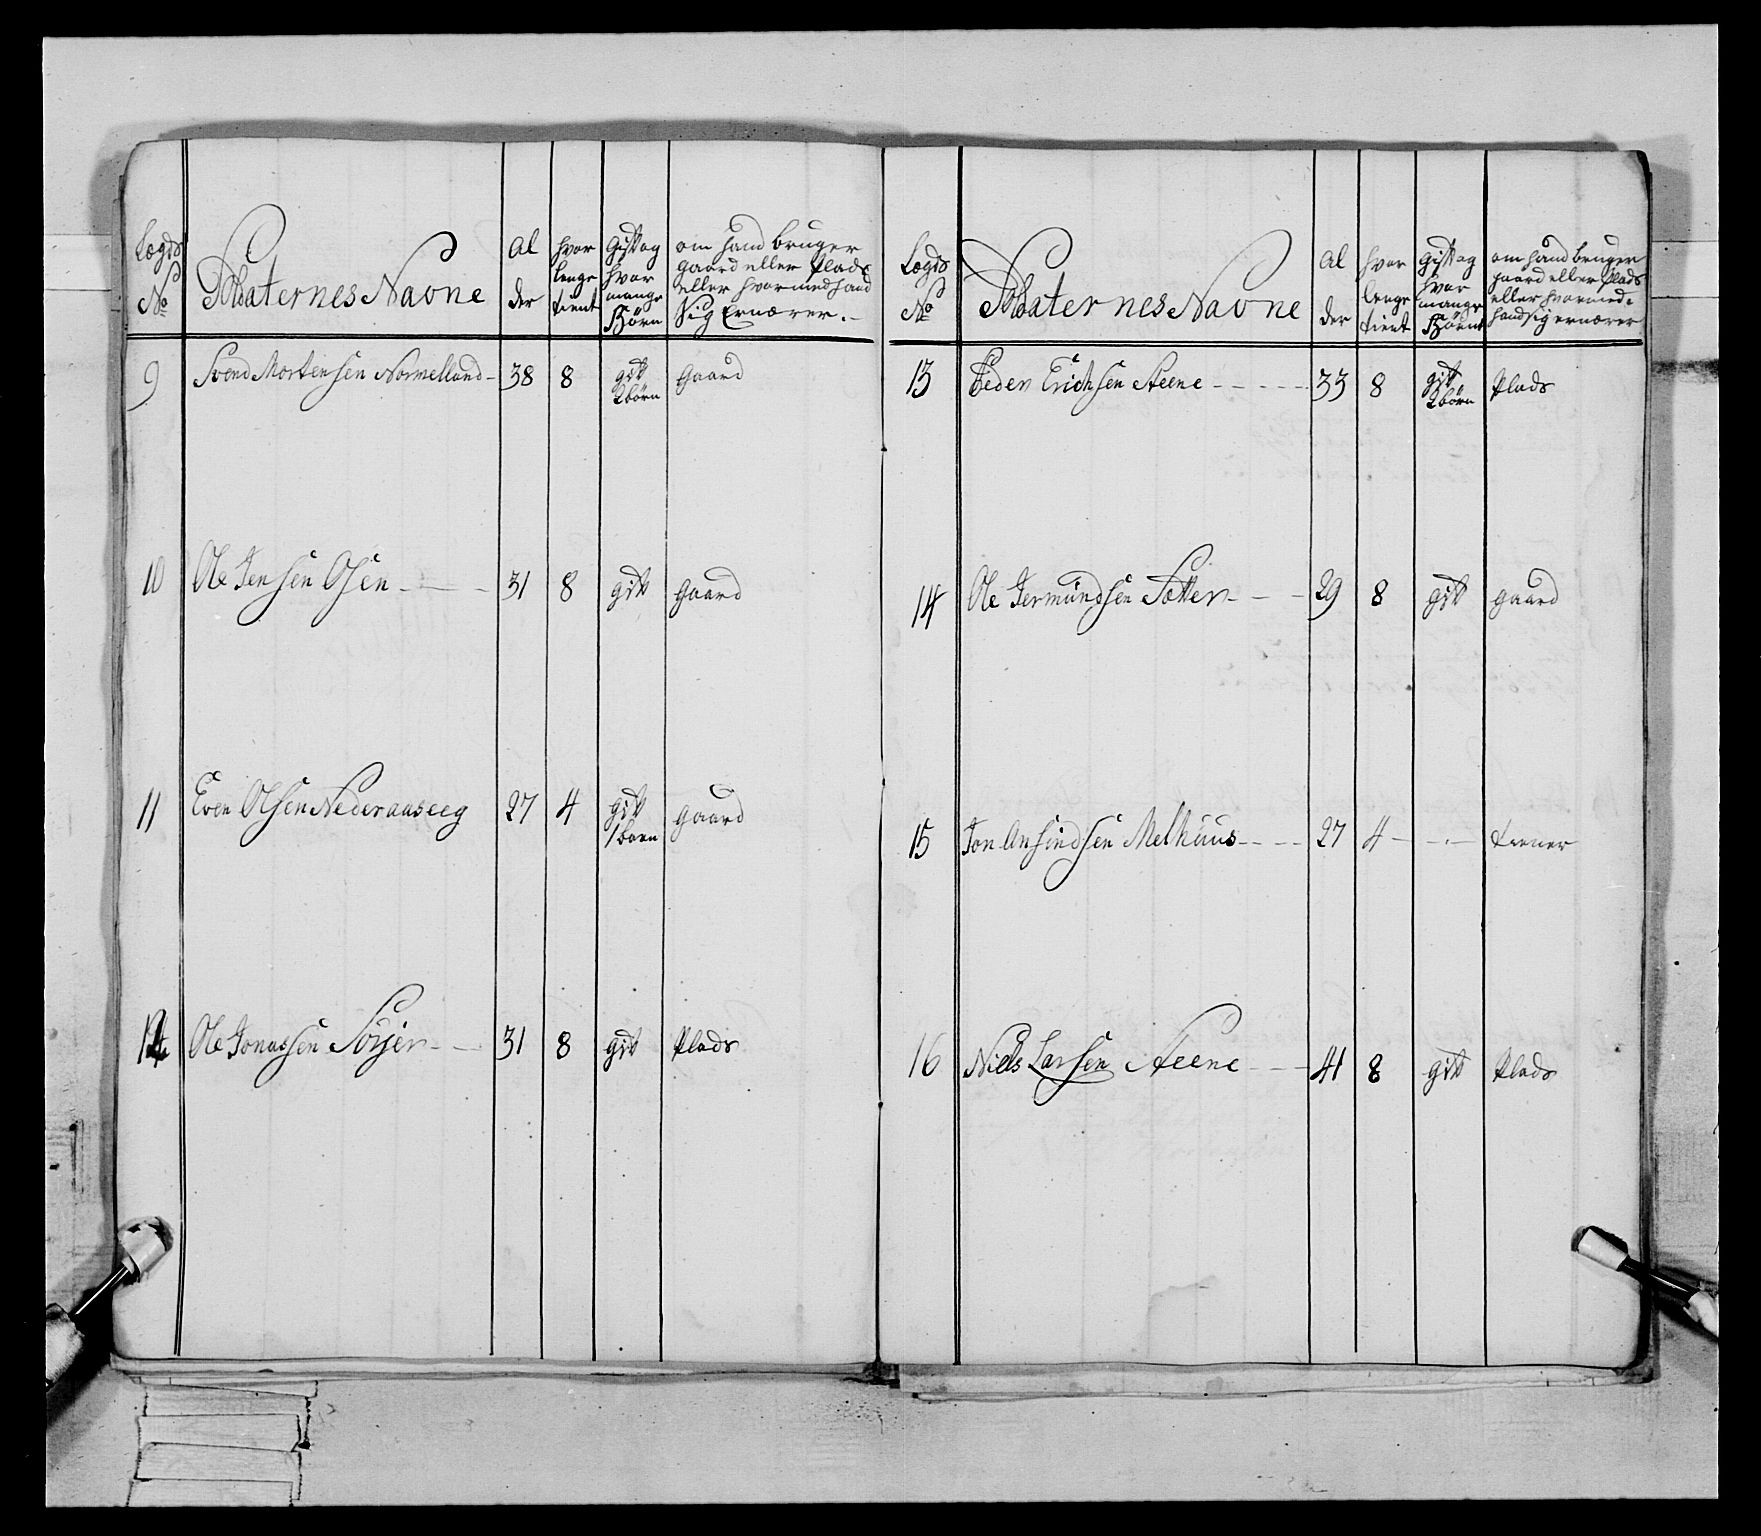 Lægds No Soldaternes Navne Al der hvor lenge tient Gift og hvor mange Börn om hand bruger gaard eller Plads eller hvormed hand Sig Ernærer.
9 Svend Mortensen Normelland 38 8 gift 2 börn gaard
10 Ole Jensen Osen 31 8 gift gaard
11 Even Olsen Nederaaseeg 27 4 gift 1 barn gaard
12 Ole Jonassen 31 8 gift Plads
Lægds No Soldaternes Navne Al der hvor lenge tient Gift og hvor mange Börn om hand bruger gaard eller Plads eller hvormed hand sig ernærer
13 Peder Erichsen Steene 33 8 gift 2 börn Plads
14 Ole Germundsen Sætter 29 8 gift gaard
15 Jon Ansindsen Melhuus 27 4 tiener
16 Niels Larsen Steene 41 8 gift Plads